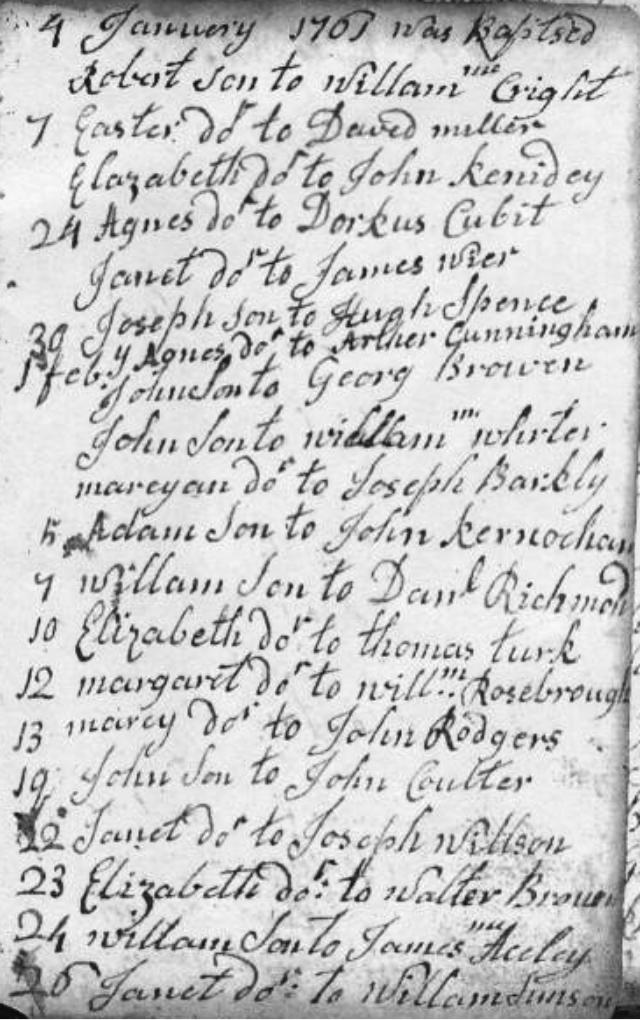 4 Janwery 1761 was Baptsed
Robert son to willam mc Cright
7 Easter dor to Daved miller
Elazabeth dor to John Kenidey
24 Agnes dor to Dorkus Cubit
Janet dor to James wier
Joseph son to Hugh Spence
30 Agnes dor to Arther Cunningham
1 feby John Son to Georg Browen
John Son to willam mc whirter
mareyan dor to Joseph Barkly
5 Adam Son to John Kernochan
7 willam Son to Danl Richmond
10 Elizabeth dor to thomas turk
12 margaret dor to willm Rosebrough
13 marey dor to John Rodgers
19 John Son to John Coulter
22 Janet dor to Joseph Willson
23 Elizabeth dor: to Walter Browen
24 willam Son to James mc
26 Janet dor: to Willam